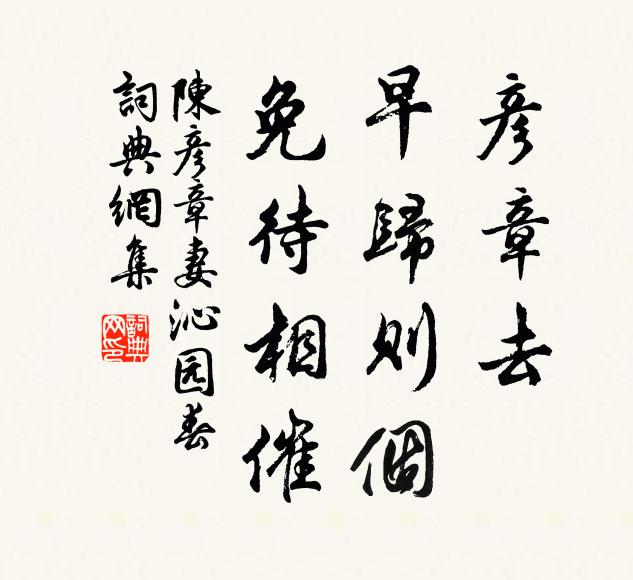 彦章去
早歸則個
免待相催
陳彦章妻沁园春
詞典網集
詞典网印